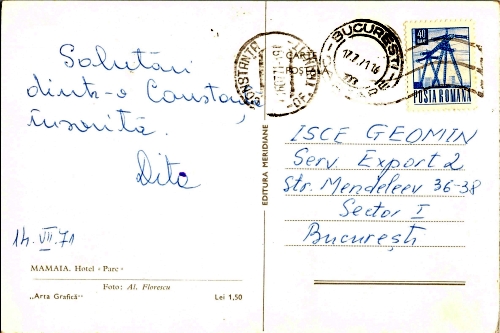 Salutări
dintr-o Constanță
însorită.
Dita
14.VII.71
MAMAIA. Hotel «Parc»
Foto: Al. Florescu
„Arta Grafică“ Lei 1,50
EDITURA MERIDIANE
CARTE
POȘTALĂ
CONSTANȚA
BUCUREȘTI
17.7.71.16
40
BANI
POSTA ROMANA
ISCE GEOMIN
Serv. Export 2
Str. Mendeleev 36-38
Sector I
București